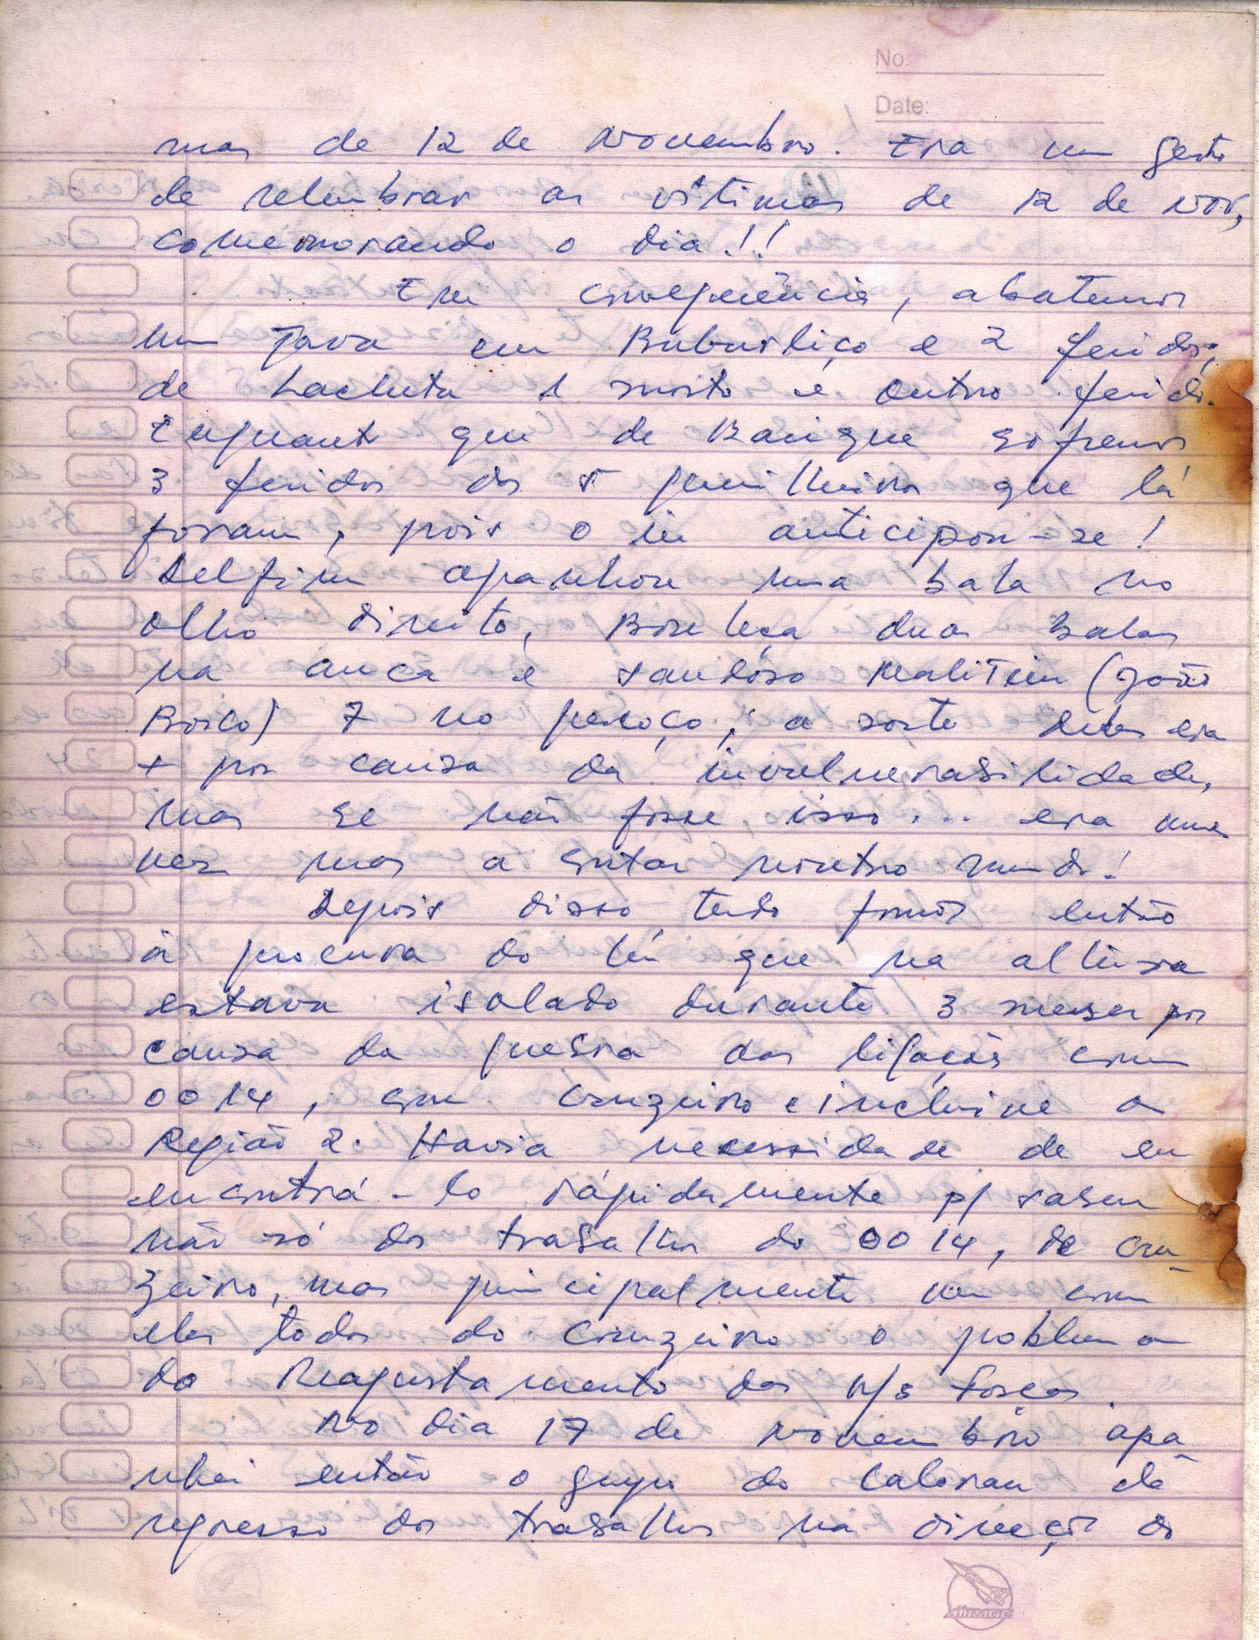 No:
Date:
mas de 12 de Novembro. Era um gesto
de relembrar as vítimas de 12 de Nov,
comemorando o dia!!
Em conseqüência, abatemos
um Java em Buburliço e 2 feridos;
de Lacluta 1 morto e outro ferido.
Enquanto que de Baigue sofremos
3 feridos dos 5 guerrilheiros que lá
foram, pois o in anticipou-se!
Delfim apanhou uma bala no
olho direito, Boseleça duas balas
na anca e saudoso Malitein (João
Bosco) 7 no pescoço; a sorte deles era
+ por causa da invulnerabilidade,
mas se não fosse isso... era uma
vez mas a contar noutro mundo!
Depois disso tudo fomos então
à procura do Lú que na altura
estava isolado durante 3 meses por
causa da quebra das ligações com
0014, com Cruzeiro e inclusive a
Região 2. Havia necessidade de eu
encontrá-lo rápidamente p/ saber
não só do trabalho do 0014, de Cru-
zeiro, mas principalmente ver com
eles todos do Cruzeiro o problema
do Reajustamento das n/s Forças.
No dia 17 de Novembro apa-
nhei então o grupo do Caloran de
regresso dos trabalhos na direcção do